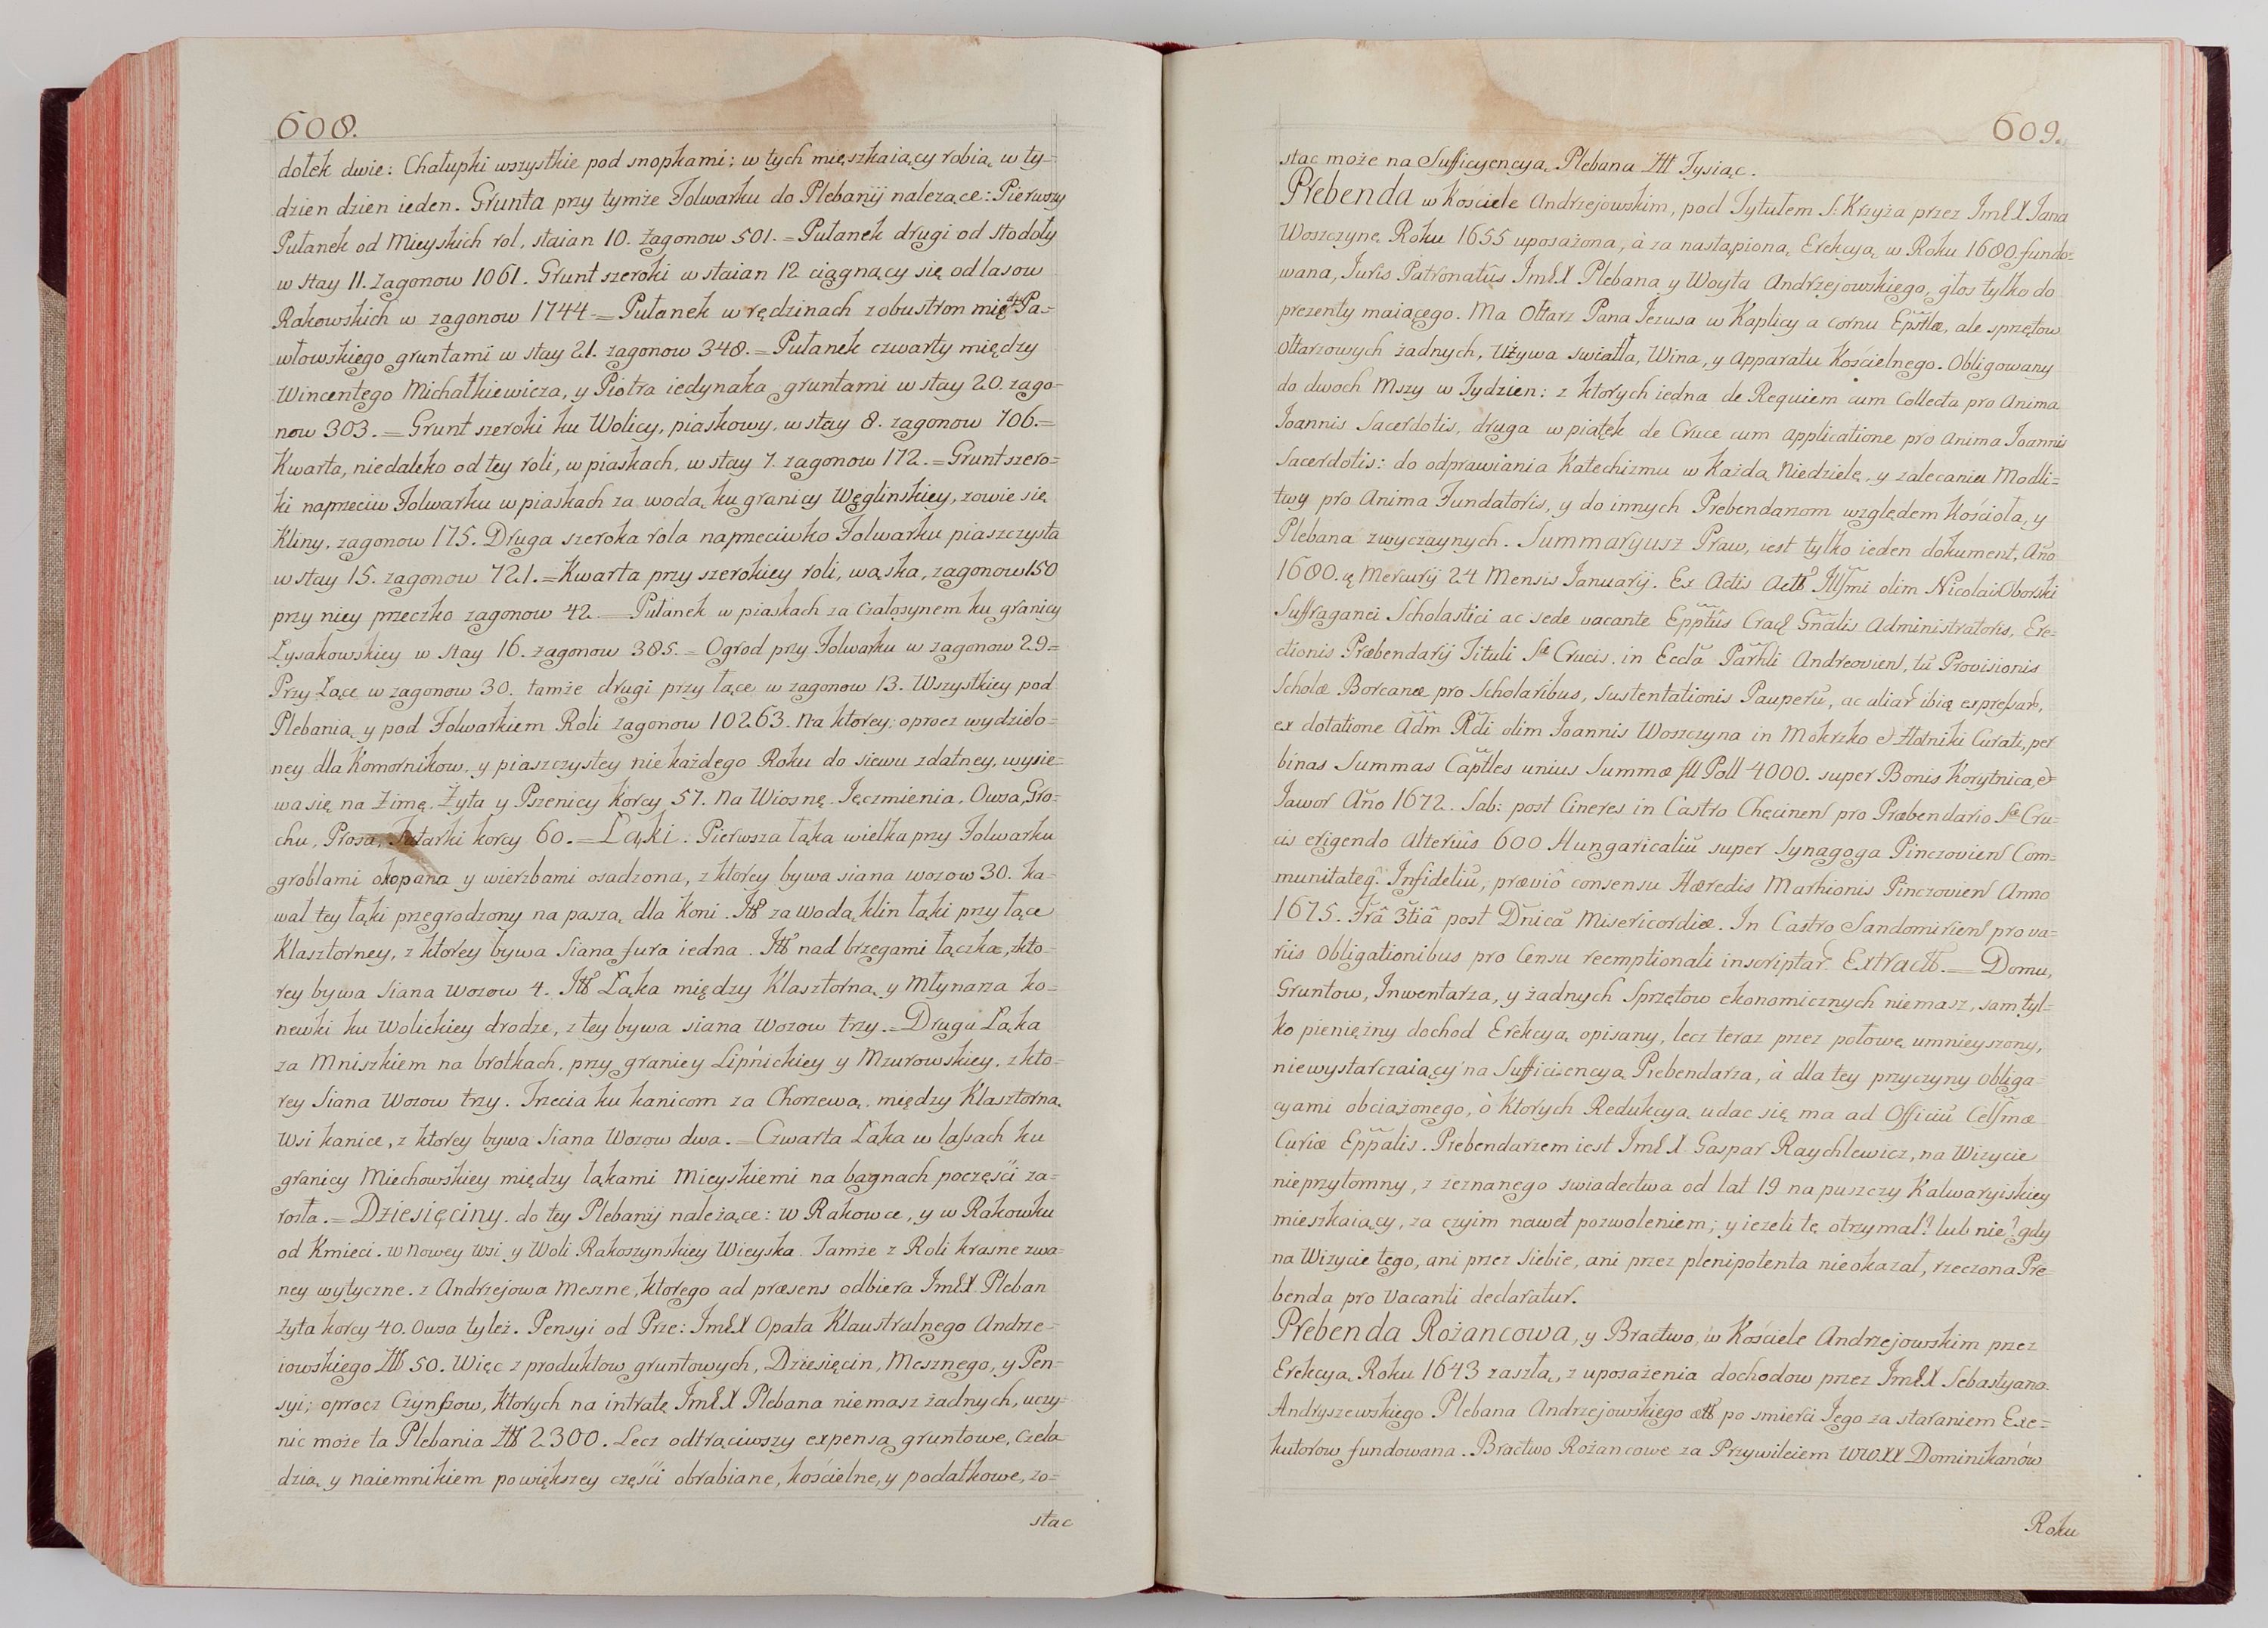 608.
dołek dwie: Chałupki wszystkie pod snopkami; w tych mięszkaiący robią w ty-
dzien dzien ieden. Grunta przy tymże Folwarku do Plebanij nalezące: Pierwszy
Pułanek od Mieyskich rol, staian 10. zagonow 501. = Pułanek drugi od Stodoły
w stay 11. zagonow 1061. Grunt szeroki w staian 12 ciągnący się od lasow
Rakowskich w zagonow 1744 = Pułanek w rędzinach z obustron mię dź Pa-
włowskiego gruntami w stay 21. zagonow 348. = Pułanek czwarty między
Wincentego Michałkiewicza, y Piotra iedynaka gruntami w stay 20. zago-
now 303. = Grunt szeroki ku Wolicy, piaskowy, w stay 8. zagonow 706. =
Kwarta, niedaleko od tey roli, w piaskach, w stay 7. zagonow 172. = Grunt szero=
ki naprzeciw Folwarku w piaskach za wodą, ku granicy Węglinskiey, zowie się
Kliny, zagonow 175. Druga szeroka rola naprzeciwko Folwarku piaszczysta
w stay 15. zagonow 721. = Kwarta przy szerokiey roli, wąska, zagonow 150
przy niey przeczko zagonow 42. = Pułanek w piaskach za Czałosynem ku granicy
Łysakowskiey w stay 16. zagonow 385. = Ogrod przy Folwarku w zagonow 29 =
Przy Łące w zagonow 30. tamże drugi przy łące w zagonow 13. Wszystkiey pod
Plebanią y pod Folwarkiem Roli zagonow 10263. Na ktorey: oprocz wydzielo=
ney dla Komornikow, y piaszczystey nie każdego Roku do siewu zdatney, wysie=
wa się na Zimę. Żyta y Pszenicy Korcy 57. Na Wiosnę Jęczmienia, Owsa, Gro=
chu, Prosa, Tatarki korcy 60. = Łąki. Pierwsza łąka wielka przy Folwarku
groblami okopana y wierzbami osadzona, z ktorey bywa siana wozow 30. ka=
wał tey łąki przegrodzony na paszą dla Koni. Itt za wodą klin łąki przy łące
Klasztorney, z ktorey bywa Siana fura iedna. Itt nad brzegami łączka, z kto=
rey bywa Siana wozow 4. Itt Łąka między Klasztorną y Młynarza ko=
newki ku Wolickiey drodze, z tey bywa siana Wozow trzy. = Druga Łąka
za Mniszkiem na brotkach, przy graniey Lipnickiey y Mzurowskiey, z kto=
rey Siana Wozow trzy. Trzecia ku kanicom za Chorzewą, między Klasztorną
Wsi kanice, z ktorey bywa Siana Wozow dwa. = Czwarta Łąka w lassach ku
granicy Miechowskiey między łąkami Mieyskiemi na bagnach poczęści za=
rosła. = Dziesięciny. do tey Plebanij należące: w Rakowce, y w Rakowku
od Kmieci. w Nowey Wsi y Woli Rakoszynskiey Wieyska. Tamże z Roli krasne zwa=
ney wytyczne. z Andrzejowa Meszne, ktorego ad præsens odbiera ImLX Pleban
żyta korcy 40. Owsa tyleż. Pensyi od Prze: ImLX Opata Klaustralnego Andrze=
iowskiego Ztt 50. Więc z produktow gruntowych, Dziesięcin, Mesznego, y Pen=
syi; oprocz Czynszow, ktorych na intratę ImLX Plebana nie masz żadnych, uczy=
nic może ta Plebania Ztt 2300. Lecz odtrąciwszy expensą gruntowe, Czela=
dzią y naiemnikiem powiększey części obrabiane, kościelne, y podatkowe, zo=
stac
609.
stac może na Sufficyencyą Plebana Ztt Tysiąc.
Prebenda w Kościele Andrzejowskim, pod Tytułem S. Krzyża przez ImLX Jana
Woszczynę Roku 1655 uposażona, à za nastąpioną Erekcyą w Roku 1680. fundo=
wana, Juris Patronatûs ImLX Plebana y Woyta Andrzejowskiego, głos tylko do
prezenty maiącego. Ma Ołtarz Pana Jezusa w Kaplicy a cornu Epstlæ, ale sprzętow
Ołtarzowych żadnych, Używa światła, Wina, y Apparatu Kościelnego. Obligowany
do dwoch Mszy w Tydzien: z ktorych iedna de Requiem cum Collecta pro Anima
Joannis Sacerdotis, druga w piątek de Cruce cum applicatione pro Anima Joannis
Sacerdotis: do odprawiania Katechizmu w Każdą Niedzielę, y zalecania Modli=
twy pro Anima Fundatoris, y do innych Prebendarzom względem Kościoła, y
Plebana zwyczaynych. Summaryusz Praw, iest tylko ieden dokument, Año
1680. Mercurij 24 Mensis Januarij. Ex Actis Actt Illmi olim Nicolai Oborski
Suffraganei Scholastici ac sede vacante Epptûs Crac Gñalis Administratoris, Ere=
ctionis Præbendarij Tituli S Crucis in Eccla Parhli Andreovien, tũ Provisionis
Scholæ Borcanæ pro Scholaribus, Sustentationis Pauperũ, ac aliar ibiq expressar,
ex dotatione Adm Rdi olim Joannis Woszczyna in Mokrzko et Złotniki Curati, per
binas Summas Captles unius Summæ fll Poll 4000. super Bonis Korytnica, et
Jawor Año 1672. Sab: post Cineres in Castro Chęcinen pro Præbendario S Cru=
cis erigendo Alterius 600 Hungaricaliũ super Synagoga Pinczovien Com=
munitateq. Infideliũ, prævio consensu Hæredis Marhionis Pinczovien Anno
1675. Frâ 3tiâ post Dñicã Misericordiæ. In Castro Sandomirien pro va=
riis Obligationibus pro Censu reemptionali inscriptar. Extractt. = Domu,
Gruntow, Inwentarza, y żadnych Sprzętow ekonomicznych nie masz, sam tyl=
ko pieniężny dochod Erekcyą opisany, lecz teraz przez połowę umnieyszony,
niewystarczaiący na Sufficiencyą Prebendarza, à dla tey przyczyny Obliga=
cyami obciążonego, ò ktorych Redukcyą udac się ma ad Officiũ Celsmæ
Curiæ Eppalis. Prebendarzem iest ImLX Gaspar Raychlewicz, na Wizycie
nieprzytomny, z zeznanego swiadectwa od lat 19 na puszczy Kalwaryiskiey
mieszkaiący, za czyim nawet pozwoleniem; y ieżeli te otrzymał? lub nie? gdy
na Wizycie tego, ani przez Siebie, ani przez plenipotenta nie okazał, rzeczona Pre
benda pro Vacanti declaratur.
Prebenda Rożancowa, y Bractwo, w Kościele Andrzejowskim przez
Erekcyą Roku 1643 zaszłą, z uposażenia dochodow przez ImLX Sebastyana
Andryszewskiego Plebana Andrzejowskiego po smierci Jego za staraniem Exe=
kutorow fundowana. Bractwo Rożancowe za Przywileiem WWXX Dominikanów
Roku